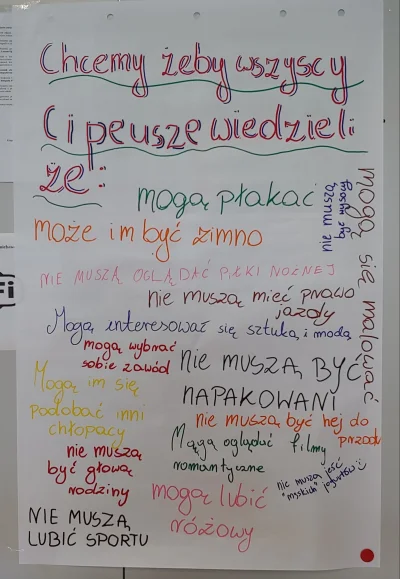 Chcemy żeby wszyscy
Ci peusze wiedzieli
że:
mogą płakać
nie muszą
być wysocy
mogą się malować
może im być zimno
NIE MUSZĄ OGLĄDAĆ PIŁKI NOŻNEJ
nie muszą mieć prawo
jazdy
Mogą interesować się sztuką i modą
mogą wybrać
sobie zawód
nie MUSZĄ BYĆ
NAPAKOWANI
Mogą im się
podobać inni
chłopacy
nie muszą być hej do
przodu
Mogą oglądać filmy
romantyczne
nie muszą
być głową
rodziny
nie muszą jeść
"męskich" jogurtów
mogą lubić
różowy
NIE MUSZĄ
LUBIĆ SPORTU
Fi